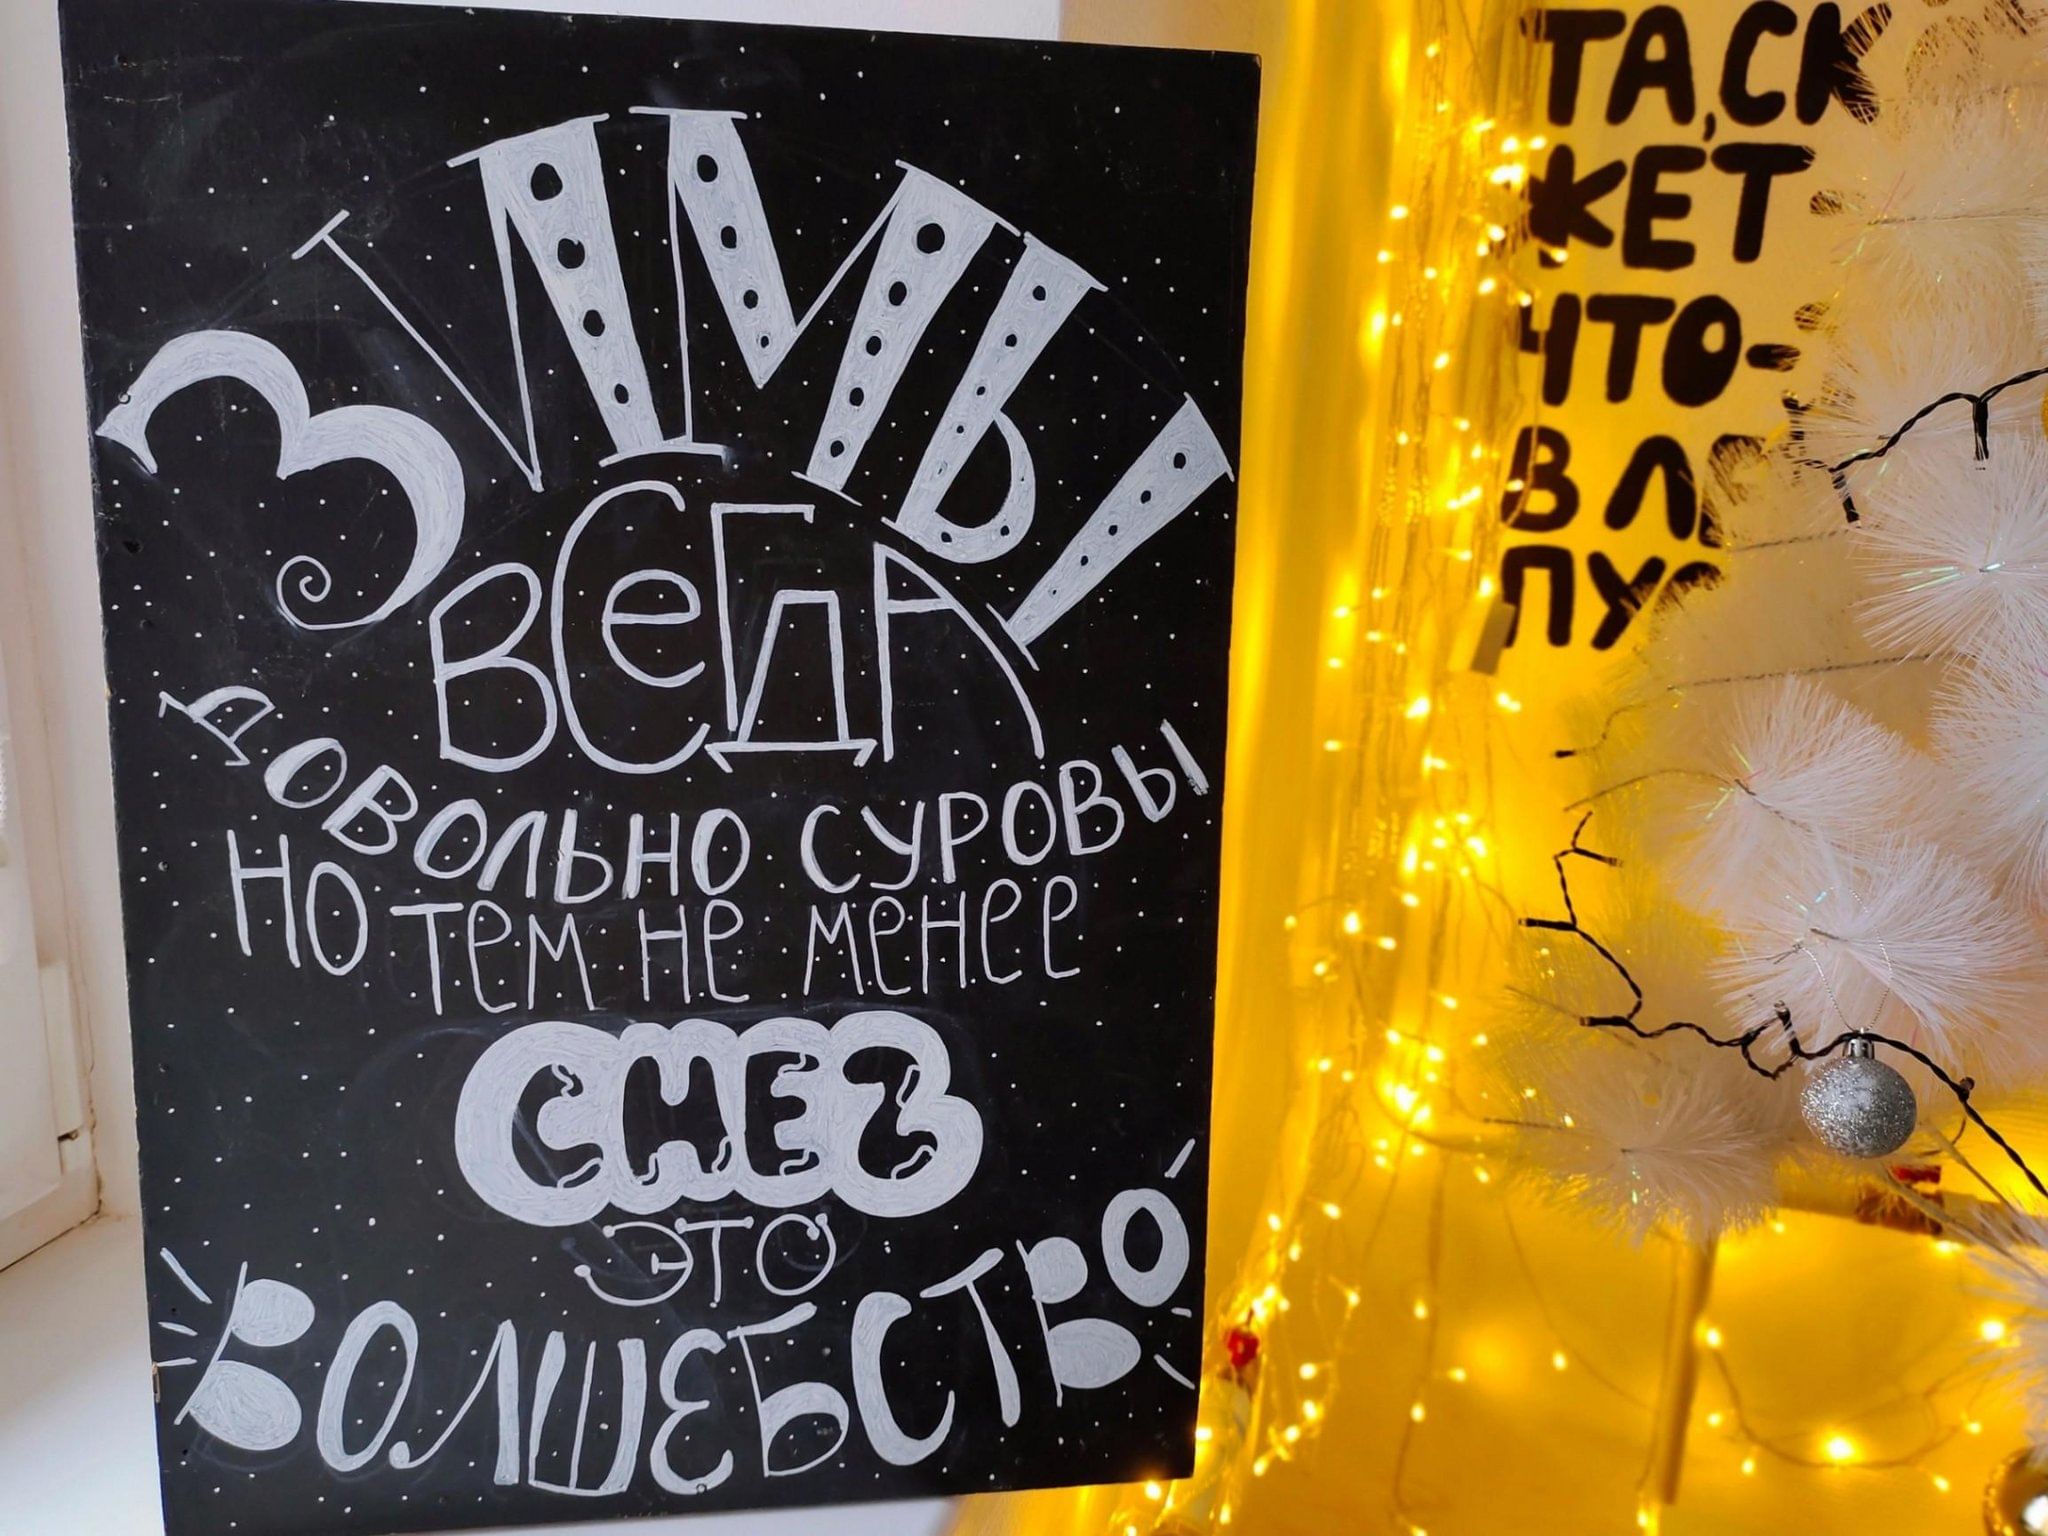 ЗИМЫ
ВСеГДА
ДОВОЛЬНО СУРОВЫ
НО ТЕМ НЕ МЕНЕЕ
СНЕГ
ЭТО
ВОЛШЕБСТВО
ТА, СК
ЖЕТ
ЧТО-
В